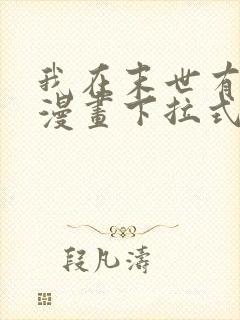 我在末世有
漫畫下拉式
段凡濤